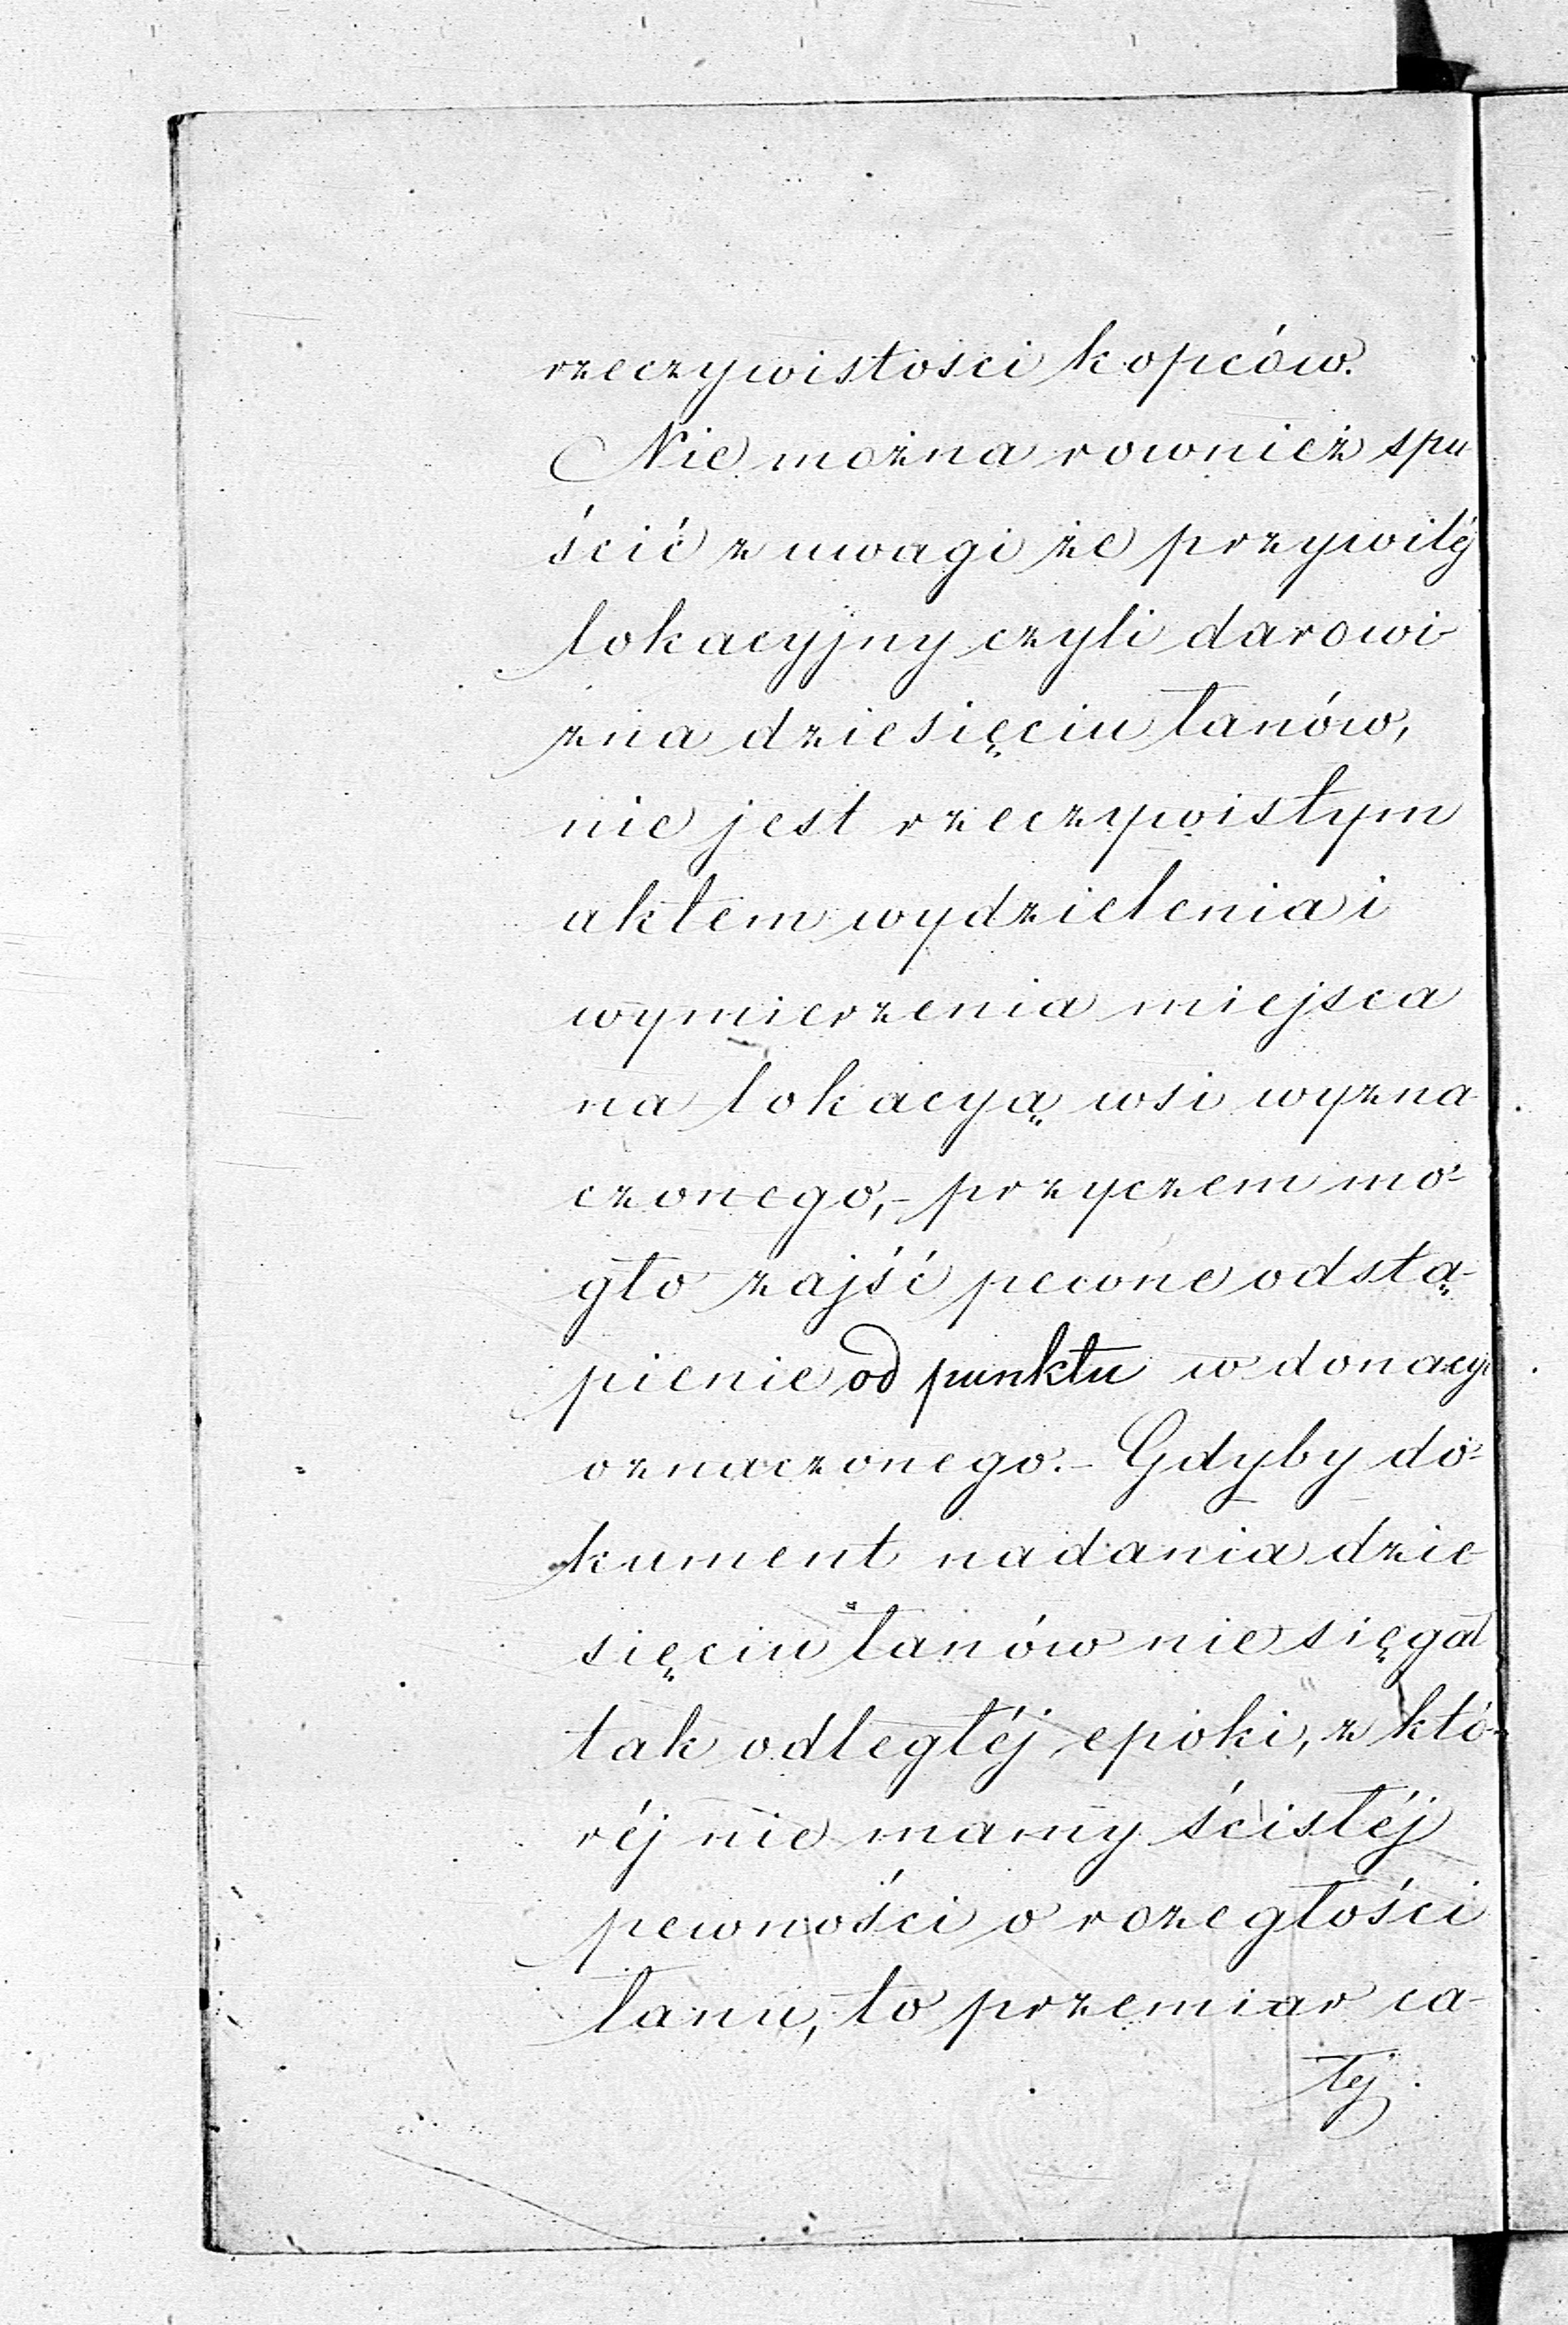 rzeczywistosci kopców.
Nie można rownież spu
ścić z uwagi że przywilý
lokacyjny czyli darowi
zna dziesięciu łanów,
nie jest rzeczywistym
aktem wydzielenia i
wymierzenia miejsca
na lokacyą wsi wyzna
czonego,- przyczem mo-
gło zajść pewne odstą-
pienie od punktu w donacyi
oznaczonego.- Gdyby do-
kument nadania dzie
sięciu łanów nie sięgał
tak odległéj epoki, z któ-
réj nie mamy ścisłéj
pewności o rozległości
łanu, to przemiar ca-
łej